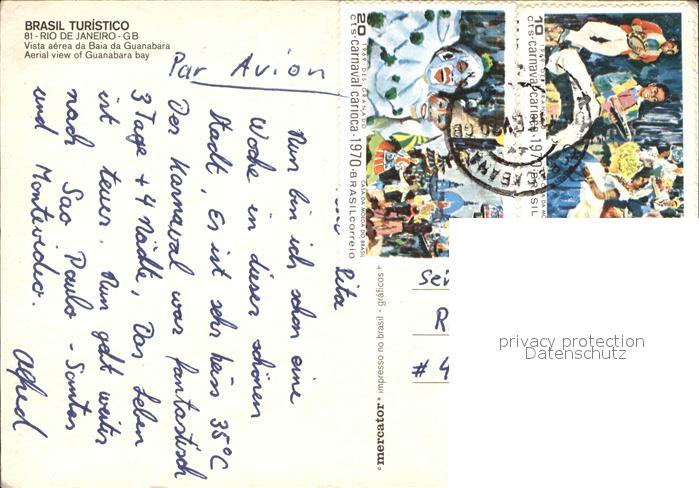 BRASIL TURÍSTICO
81 - RIO DE JANEIRO - GB
Vista aérea da Baia da Guanabara
Aerial view of Guanabara bay
Par Avion
Rita
Nun bin ich schon eine
Woche in dieser schönen
Stadt, Es ist sehr heiss 35°C
Der Karneval war fantastisch
3 Tage + 4 Nächte, Das Leben
ist teuer. Nun geht weiter
nach Sao Paulo - Santos
und Montevideo.
Alfred
20 cts · carnaval carioca · 1970 - BRASIL correio
CASA DA MOEDA DO BRASIL
10 cts · carnaval carioca · 1970 - BRASIL
mercator® impresso no brasil - gráficos
R
# 4
privacy protection
Datenschutz